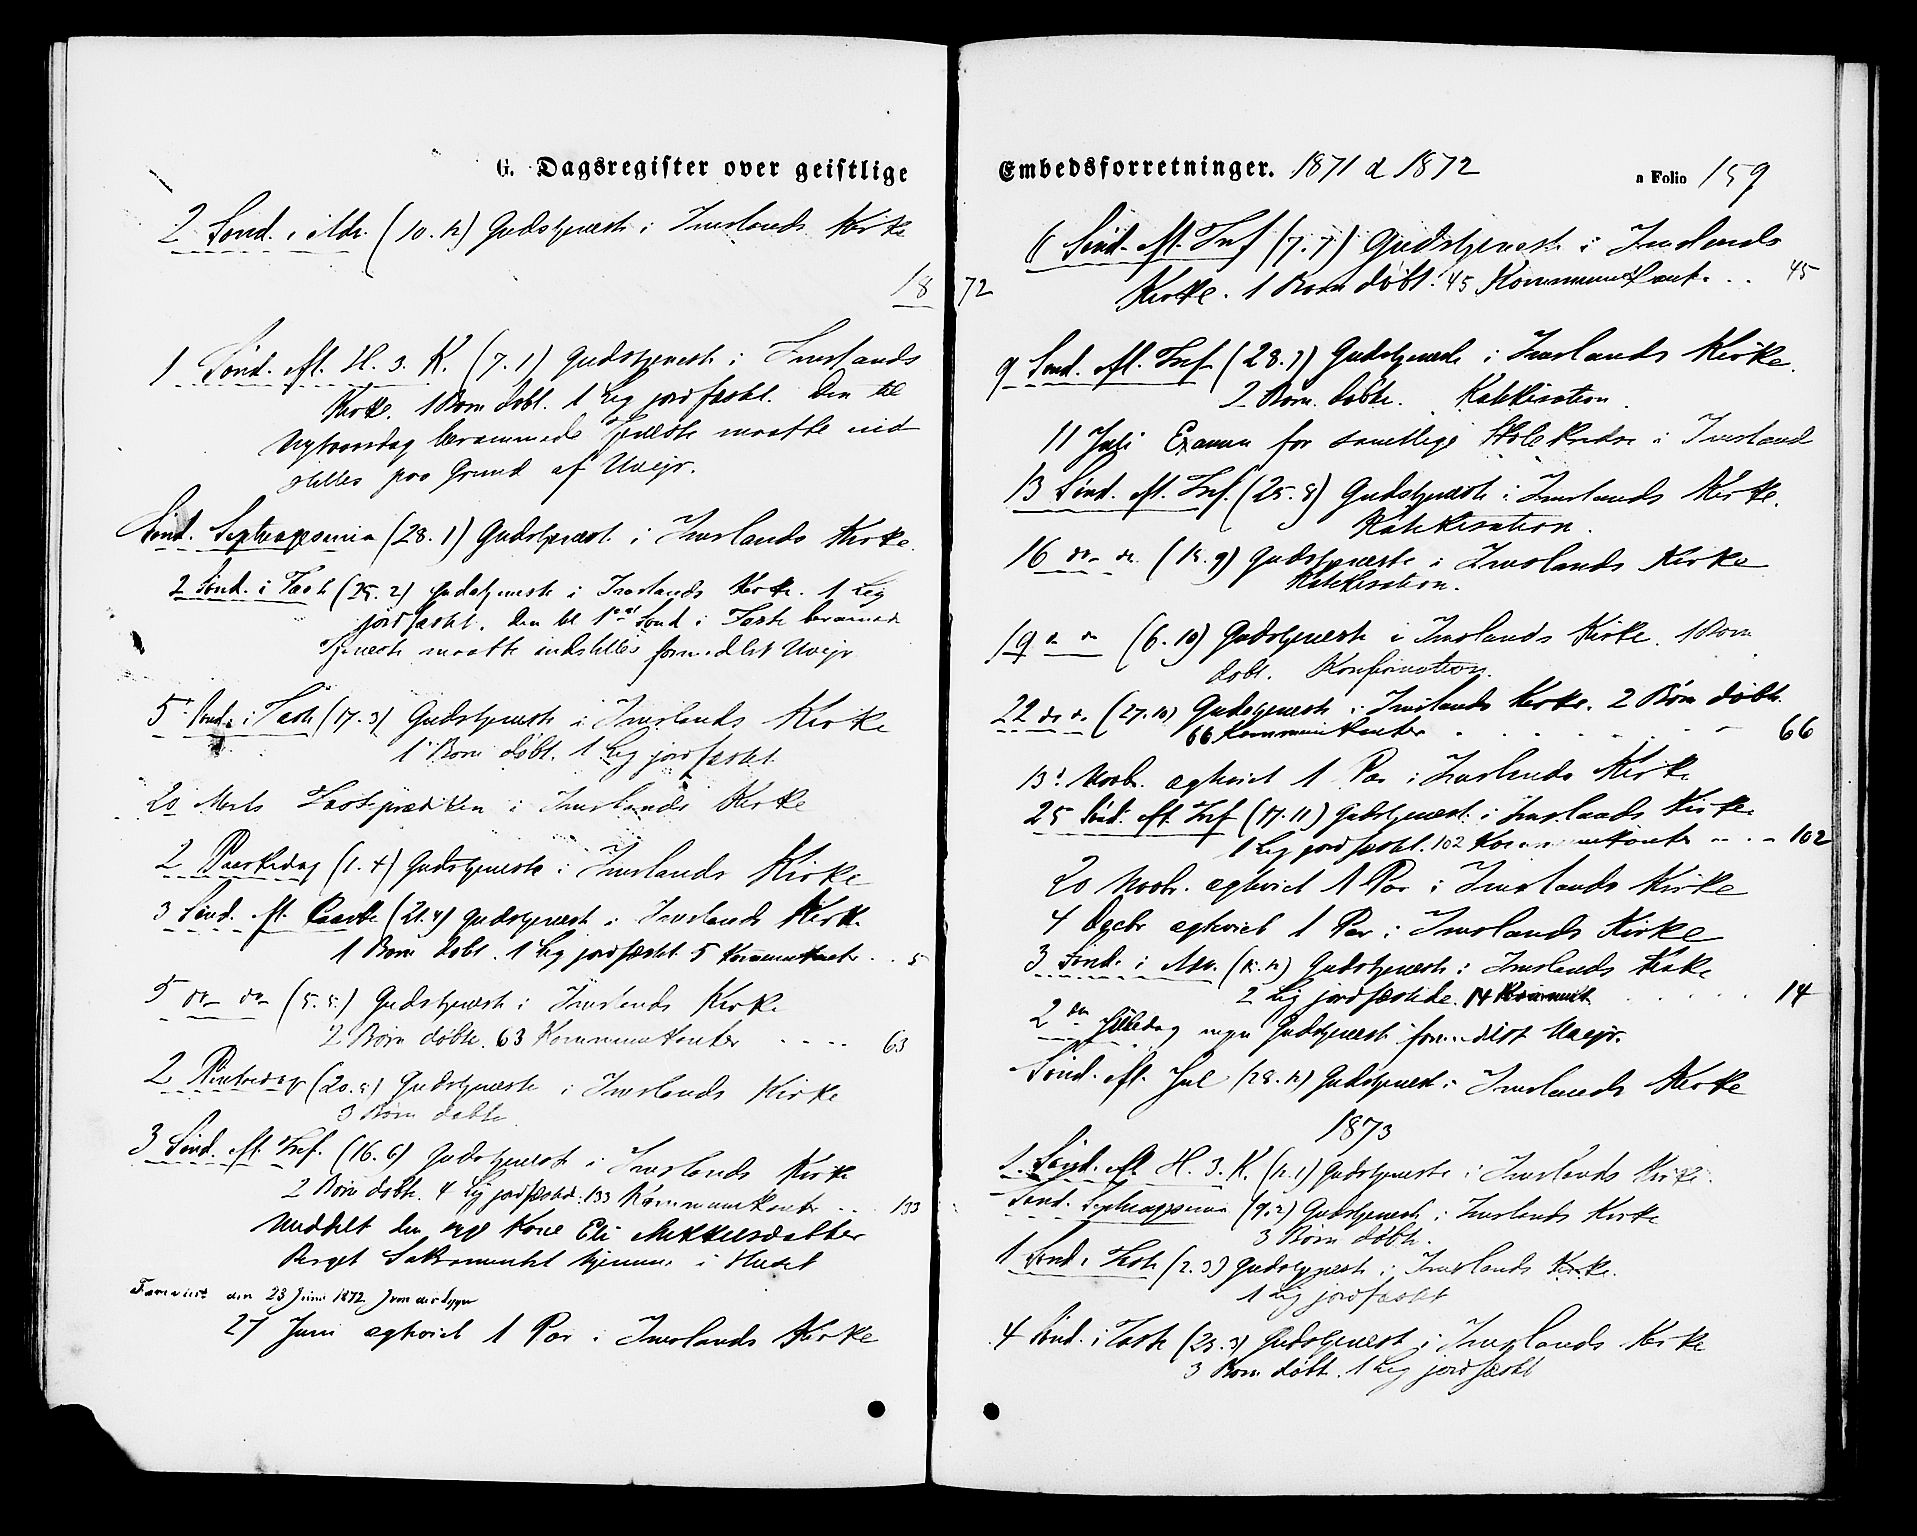 G. Dagsregister over geistlige
2 Sønd. i Adv. (10.12) Gudstjeneste i Imslands Kirke
1872
1 Sønd. eft. H. 3. K. (7.1) Gudstjeneste i Imslands
Kirke. 1 Barn døbt. 1 Lig jordfæstet. Den til
Nytaarsdag berammede Tjeneste maatte ind
stilles paa Grund af Uveir.
Sønd. Septuagesima (28.1) Gudstjeneste i Imslands Kirke.
2 Sønd. i Faste (25.2) Gudstjeneste i Imslands Kirke. 1 Lig
jordfæstet. Den til 1ste Sønd i Faste beramede
Tjeneste maatte indstilles formedelst Uveir
5 Sønd. i Faste (17.3) Gudstjeneste i Imslands Kirke
1 Barn døbt. 1 Lig jordfæstet
20 Marts Fasteprædiken i Imslands Kirke
2 Paaskedag (1.4) Gudstjeneste i Imslands Kirke
3 Sønd. eft. Paaske (21.4) Gudstjeneste i Imslands Kirke.
1 Barn døbt. 1 Lig jordfæstet. 5 Kommunikanter .. 5
5 do do (5.5) Gudstjeneste i Imslands Kirke
2 Børn døbte. 63 Kommunikanter .... 63
2 Pintsedag (20.5) Gudstjeneste i Imslands Kirke
3 Børn døbte.
3 Sønd. eft. Tref. (16.6) Gudstjeneste i Imslands Kirke
2 Børn døbte. 4 Lig jordfæstede. 133 Kommunikanter .. 133
Meddelt den syge Kone Eli Mikkelsdatter
Berget Sakramentet hjemme i Huset
den 23 Juni 1872
27 Juni ægteviet 1 Par i Imslands Kirke
Embedsforretninger. 1871 & 1872
a Folio 159
6 Sønd. eft. Tref (7.7) Gudstjeneste i Imslands
Kirke. 1 Barn døbt. 45 Kommunikant. .. 45
9 Sønd. eft. Tref (28.7) Gudstjeneste i Imslands Kirke.
2 Børn døbte. Katekisation.
11 Juli Examen for samtlige Skolekredse i Imsland
13 Sønd. eft. Tref. (25.8) Gudstjeneste i Imslands Kirke.
Katekisation.
16 do do (15.9) Gudstjeneste i Imslands Kirke
Katekisation.
19 do do (6.10) Gudstjeneste i Imslands Kirke. 1 Barn
døbt. Konfirmation.
22 do do (27.10) Gudstjeneste i Imslands Kirke. 2 Børn døbte.
66 Kommunikanter . . . . . 66
13de Novbr. ægteviet 1 Par i Imslands Kirke
25 Sønd. eft. Tref (17.11) Gudstjeneste i Imslands Kirke.
1 Lig jordfæstet. 102 Kommunikanter ... 102
20 Novbr. ægteviet 1 Par i Imslands Kirke
4 Decbr ægteviet 1 Par i Imslands Kirke
3 Sønd. i Adv. (15.12) Gudstjeneste i Imslands Kirke
2 Lig jordfæstede. 14 Kommunik. ..... 14
2den Juledag ingen Gudstjeneste formedelst Uveir.
Sønd. eft. Jul (29.12) Gudstjeneste i Imslands Kirke
1873
1. Sønd. eft. H. 3. K. (12.1) Gudstjeneste i Imslands Kirke.
Sønd. Septuagesima (9.2) Gudstjeneste i Imslands Kirke
3 Børn døbte.
1 Sønd. i Faste (2.3) Gudstjeneste i Imslands Kirke.
1 Lig jordfæstet
4 Sønd. i Faste (23.3) Gudstjeneste i Imslands Kirke
3 Børn døbte. 1 Lig jordfæstet